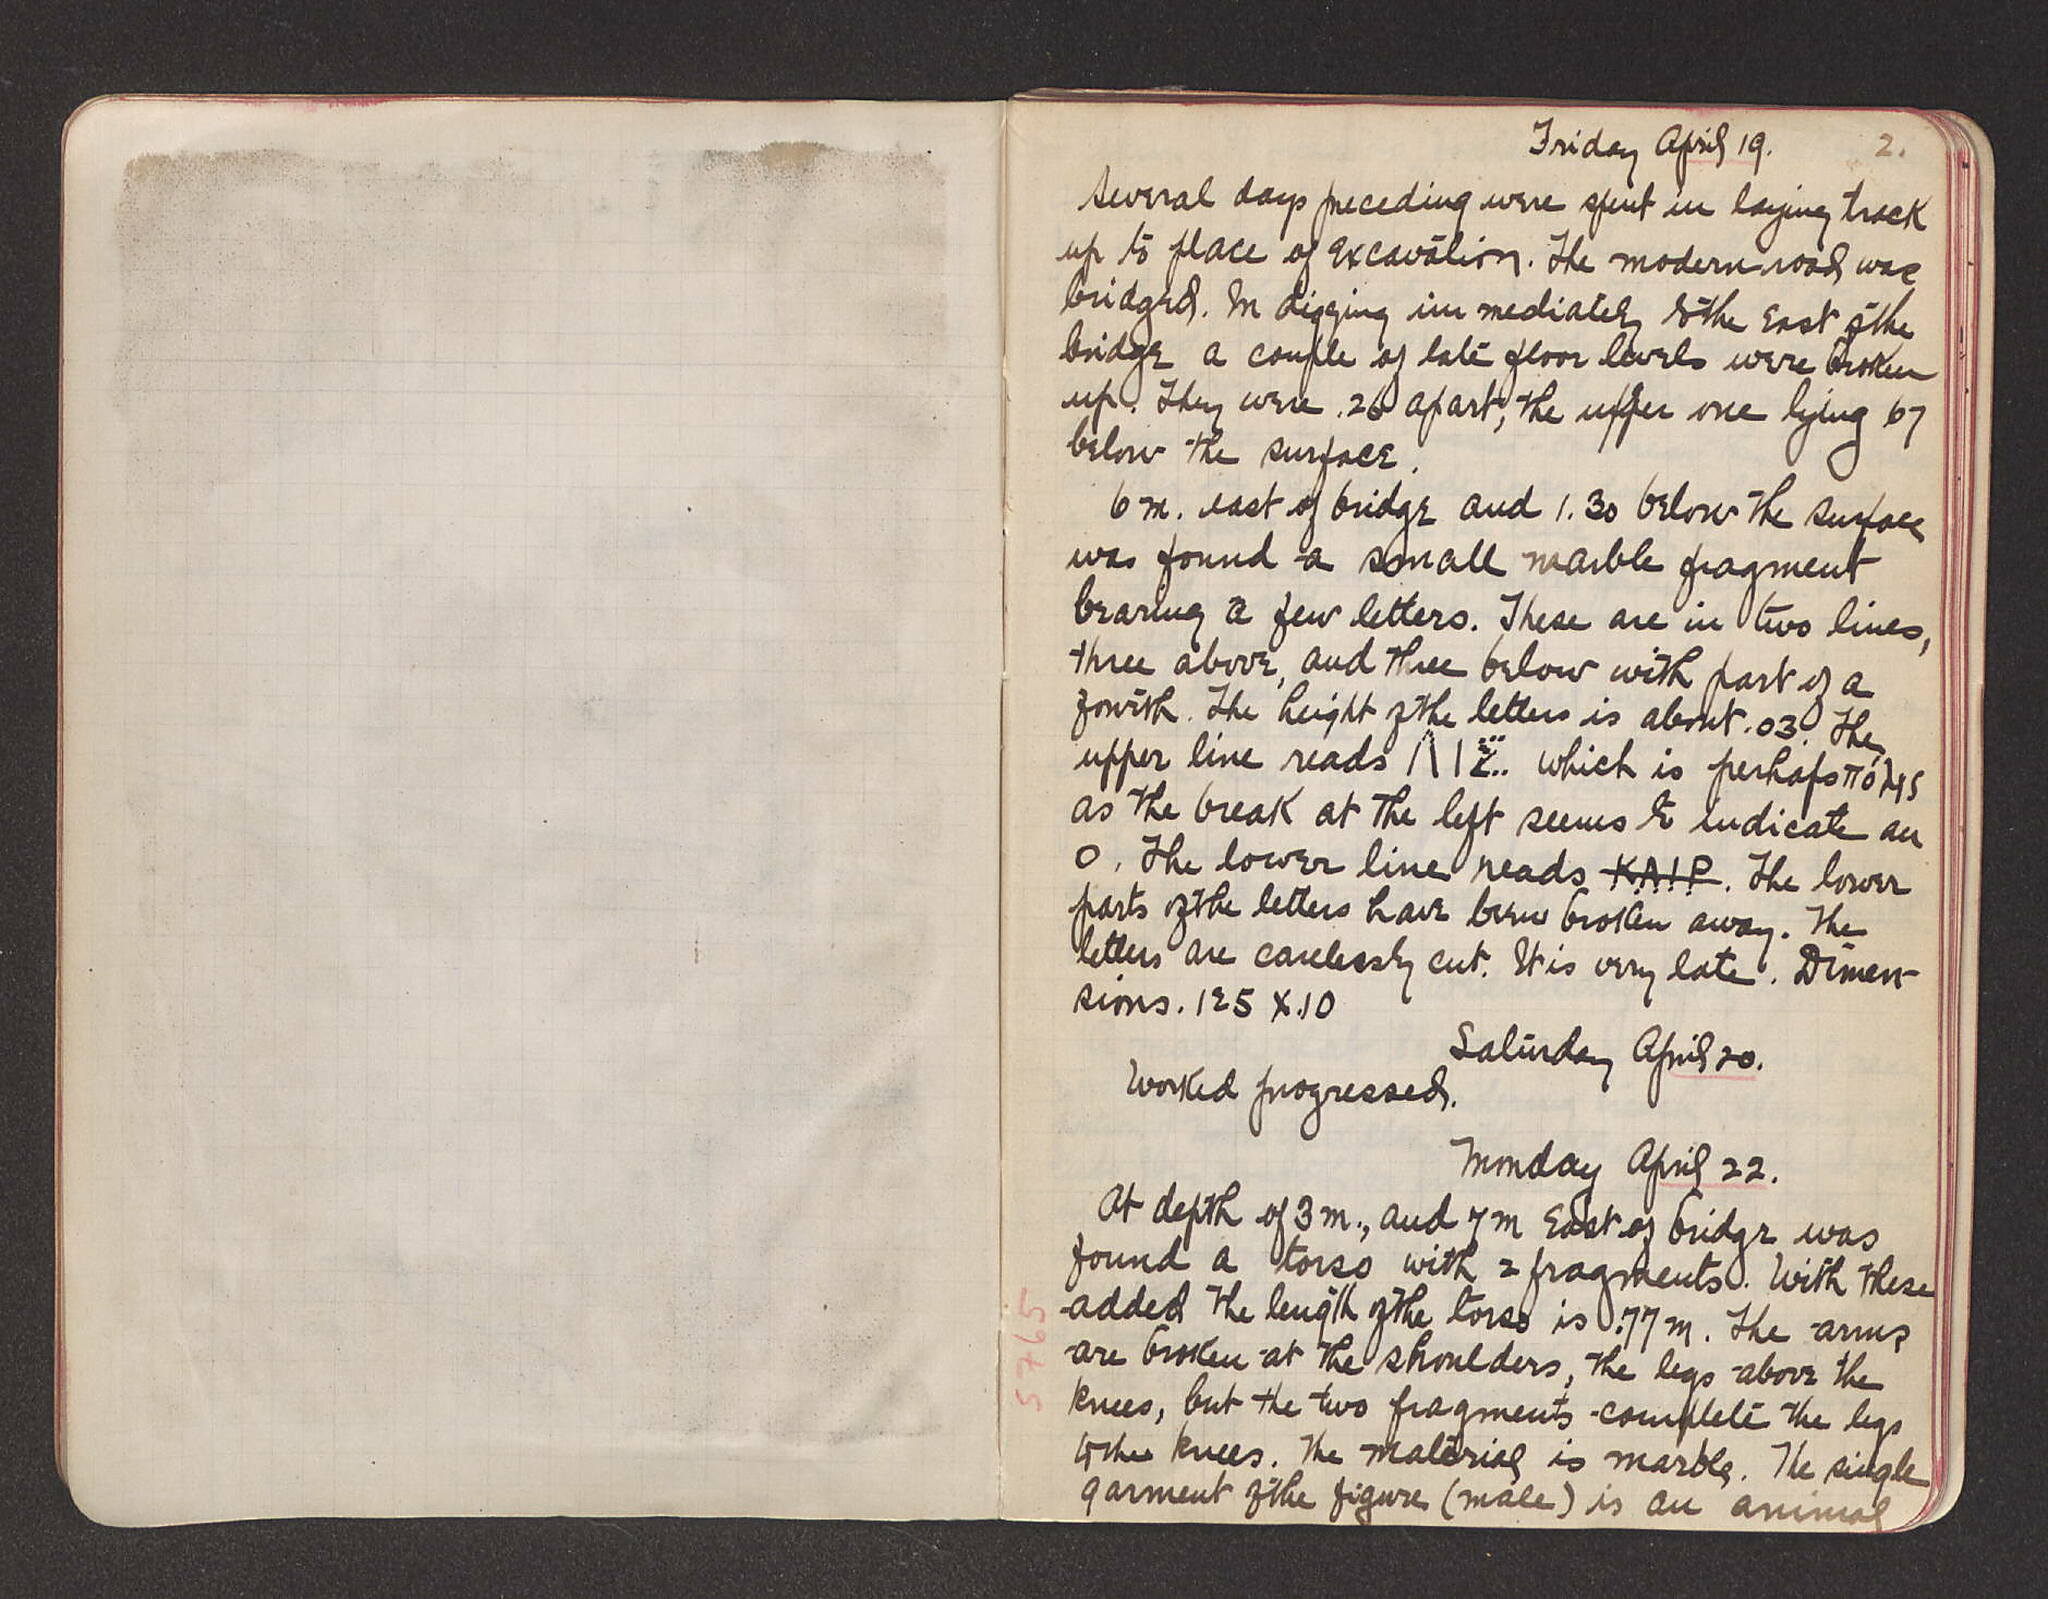 Friday April 19. 2.
Several days preceding were spent in laying track
up to place of excavation. The modern road was
bridged. In digging immediately to the East of the
bridge a couple of late floor levels were broken
up. They were .26 apart, the upper one lying 67
below the surface.
6 m. east of bridge and 1.30 below the surface
was found a small marble fragment
bearing a few letters. These are in two lines,
three above, and three below with part of a
fourth. The height of the letters is about .03. The
upper line reads which is perhaps πόλις
as the break at the left seems to indicate an
O. The lower line reads KAIP. The lower
parts of the letters have been broken away. The
letters are carelessly cut. It is very late. Dimen-
sions .125 x .10
Saturday April 20.
Worked progressed.
Monday April 22.
At depth of 3 m., and 7 m East of bridge was
found a torso with 2 fragments. With these
added the length of the torso is .77 m. The arms
are broken at the shoulders, the legs above the
knees, but the two fragments complete the legs
to the knees. The material is marble. The single
garment of the figure (male) is an animal
5765